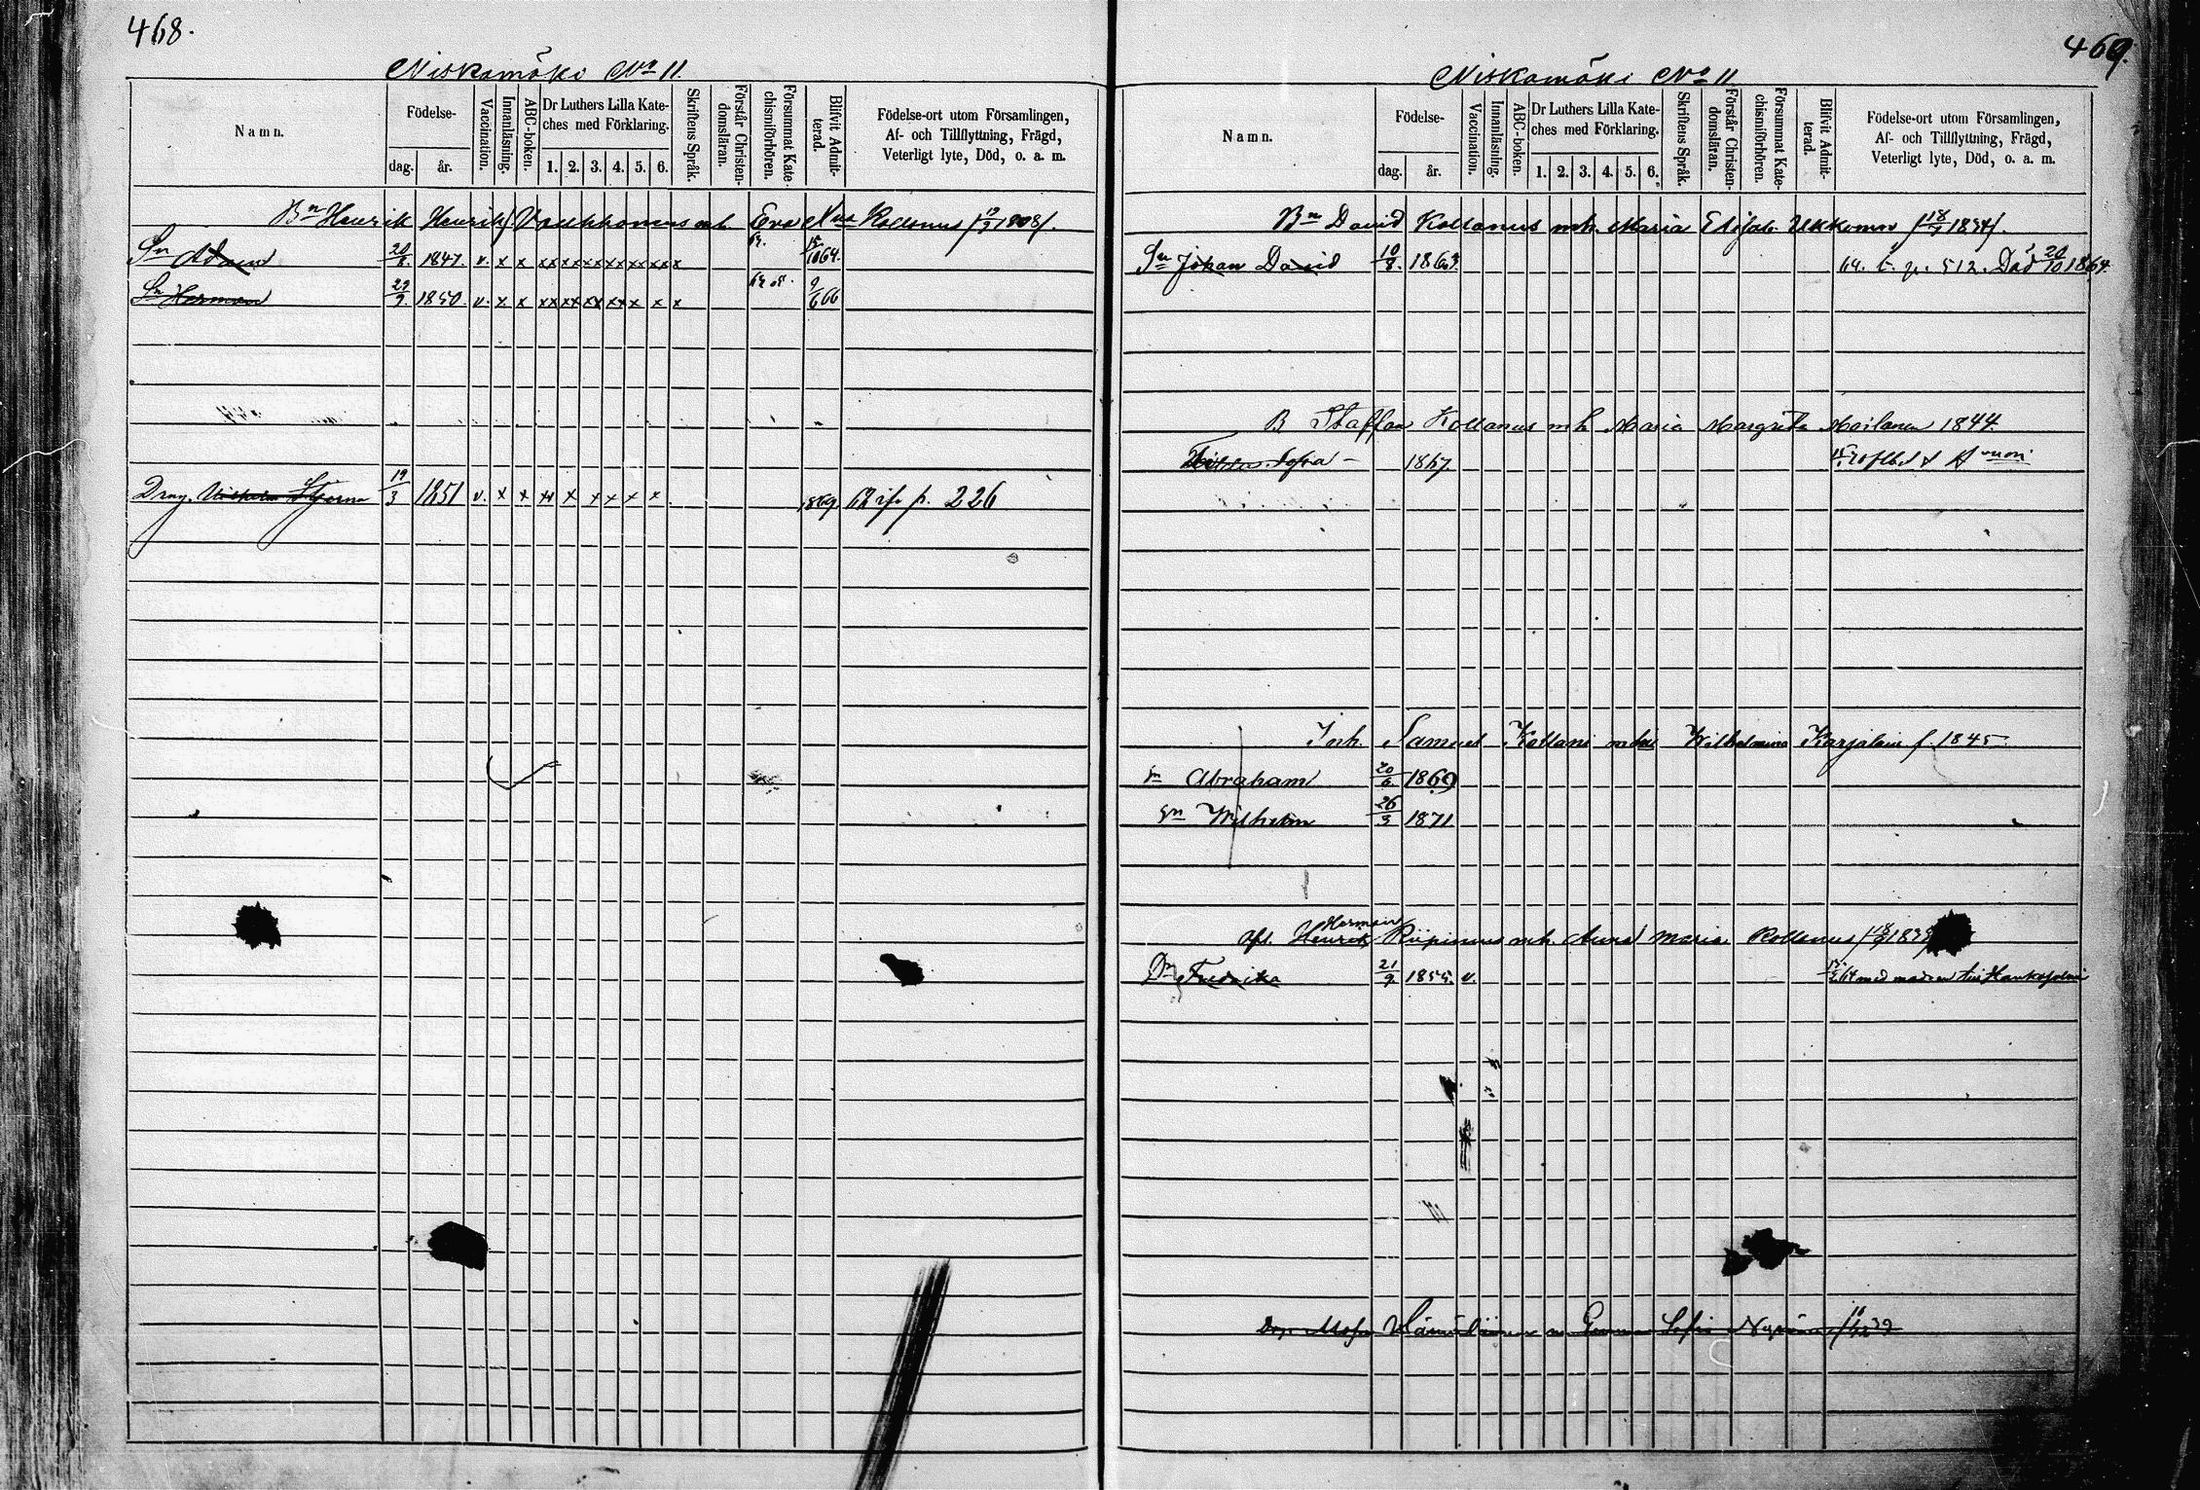 468.
Niskamäki No 11.
Namn.
Födelse-
dag.
år.
Vaccination.
Innanläsning.
ABC-boken.
Dr Luthers Lilla Kate-
ches med Förklaring.
1. 2. 3. 4. 5. 6.
Skriftens Språk.
Förstår Christen-
domsläran.
Försummat Kate-
chismiförhören.
Blifvit Admit-
terad.
Födelse-ort utom Församlingen,
Af- och Tillflyttning, Frägd,
Veterligt lyte, Död, o. a. m.
Bn Henrik Henrik mh. Eva Kollanus 1808/.
Sn Adam 20/8. 1847. v. x x xx xx xx xx xx xx x 64.
Sn Herman 29/9. 1850. v. x x xx xx xx xx x x x 9/6 66
Drng. Wilhelm 19/3 1851 v. x x x x x x x x 1869 p. 226
469.
Niskamäki No 11
Namn.
Födelse-
dag.
år.
Vaccination.
Innanläsning.
ABC-boken.
Dr Luthers Lilla Kate-
ches med Förklaring.
1. 2. 3. 4. 5. 6.
Skriftens Språk.
Förstår Christen-
domsläran.
Försummat Kate-
chismiförhören.
Blifvit Admit-
terad.
Födelse-ort utom Församlingen,
Af- och Tillflyttning, Frägd,
Veterligt lyte, Död, o. a. m.
Bn David Kollanus mh. Maria Elisab. Ukkonen 1834/.
Sn Johan David 10/8. 1863. 64. p. 512. Död 20/10 1864.
B Staffan Kollanus mh Maria Margreta Moilanen 1844.
Sofia - 1867.
Inh. Samuel Kollani Wilhelmina Karjalain f. 1845
Sn Abraham 20/6. 1869
Sn Wilhelm 26/3 1871
Herman
Henrik Riipinus mh. Anna Maria Kollanus
Dr Fredrika 21/9. 1855. v. 64 med modren
Sofia